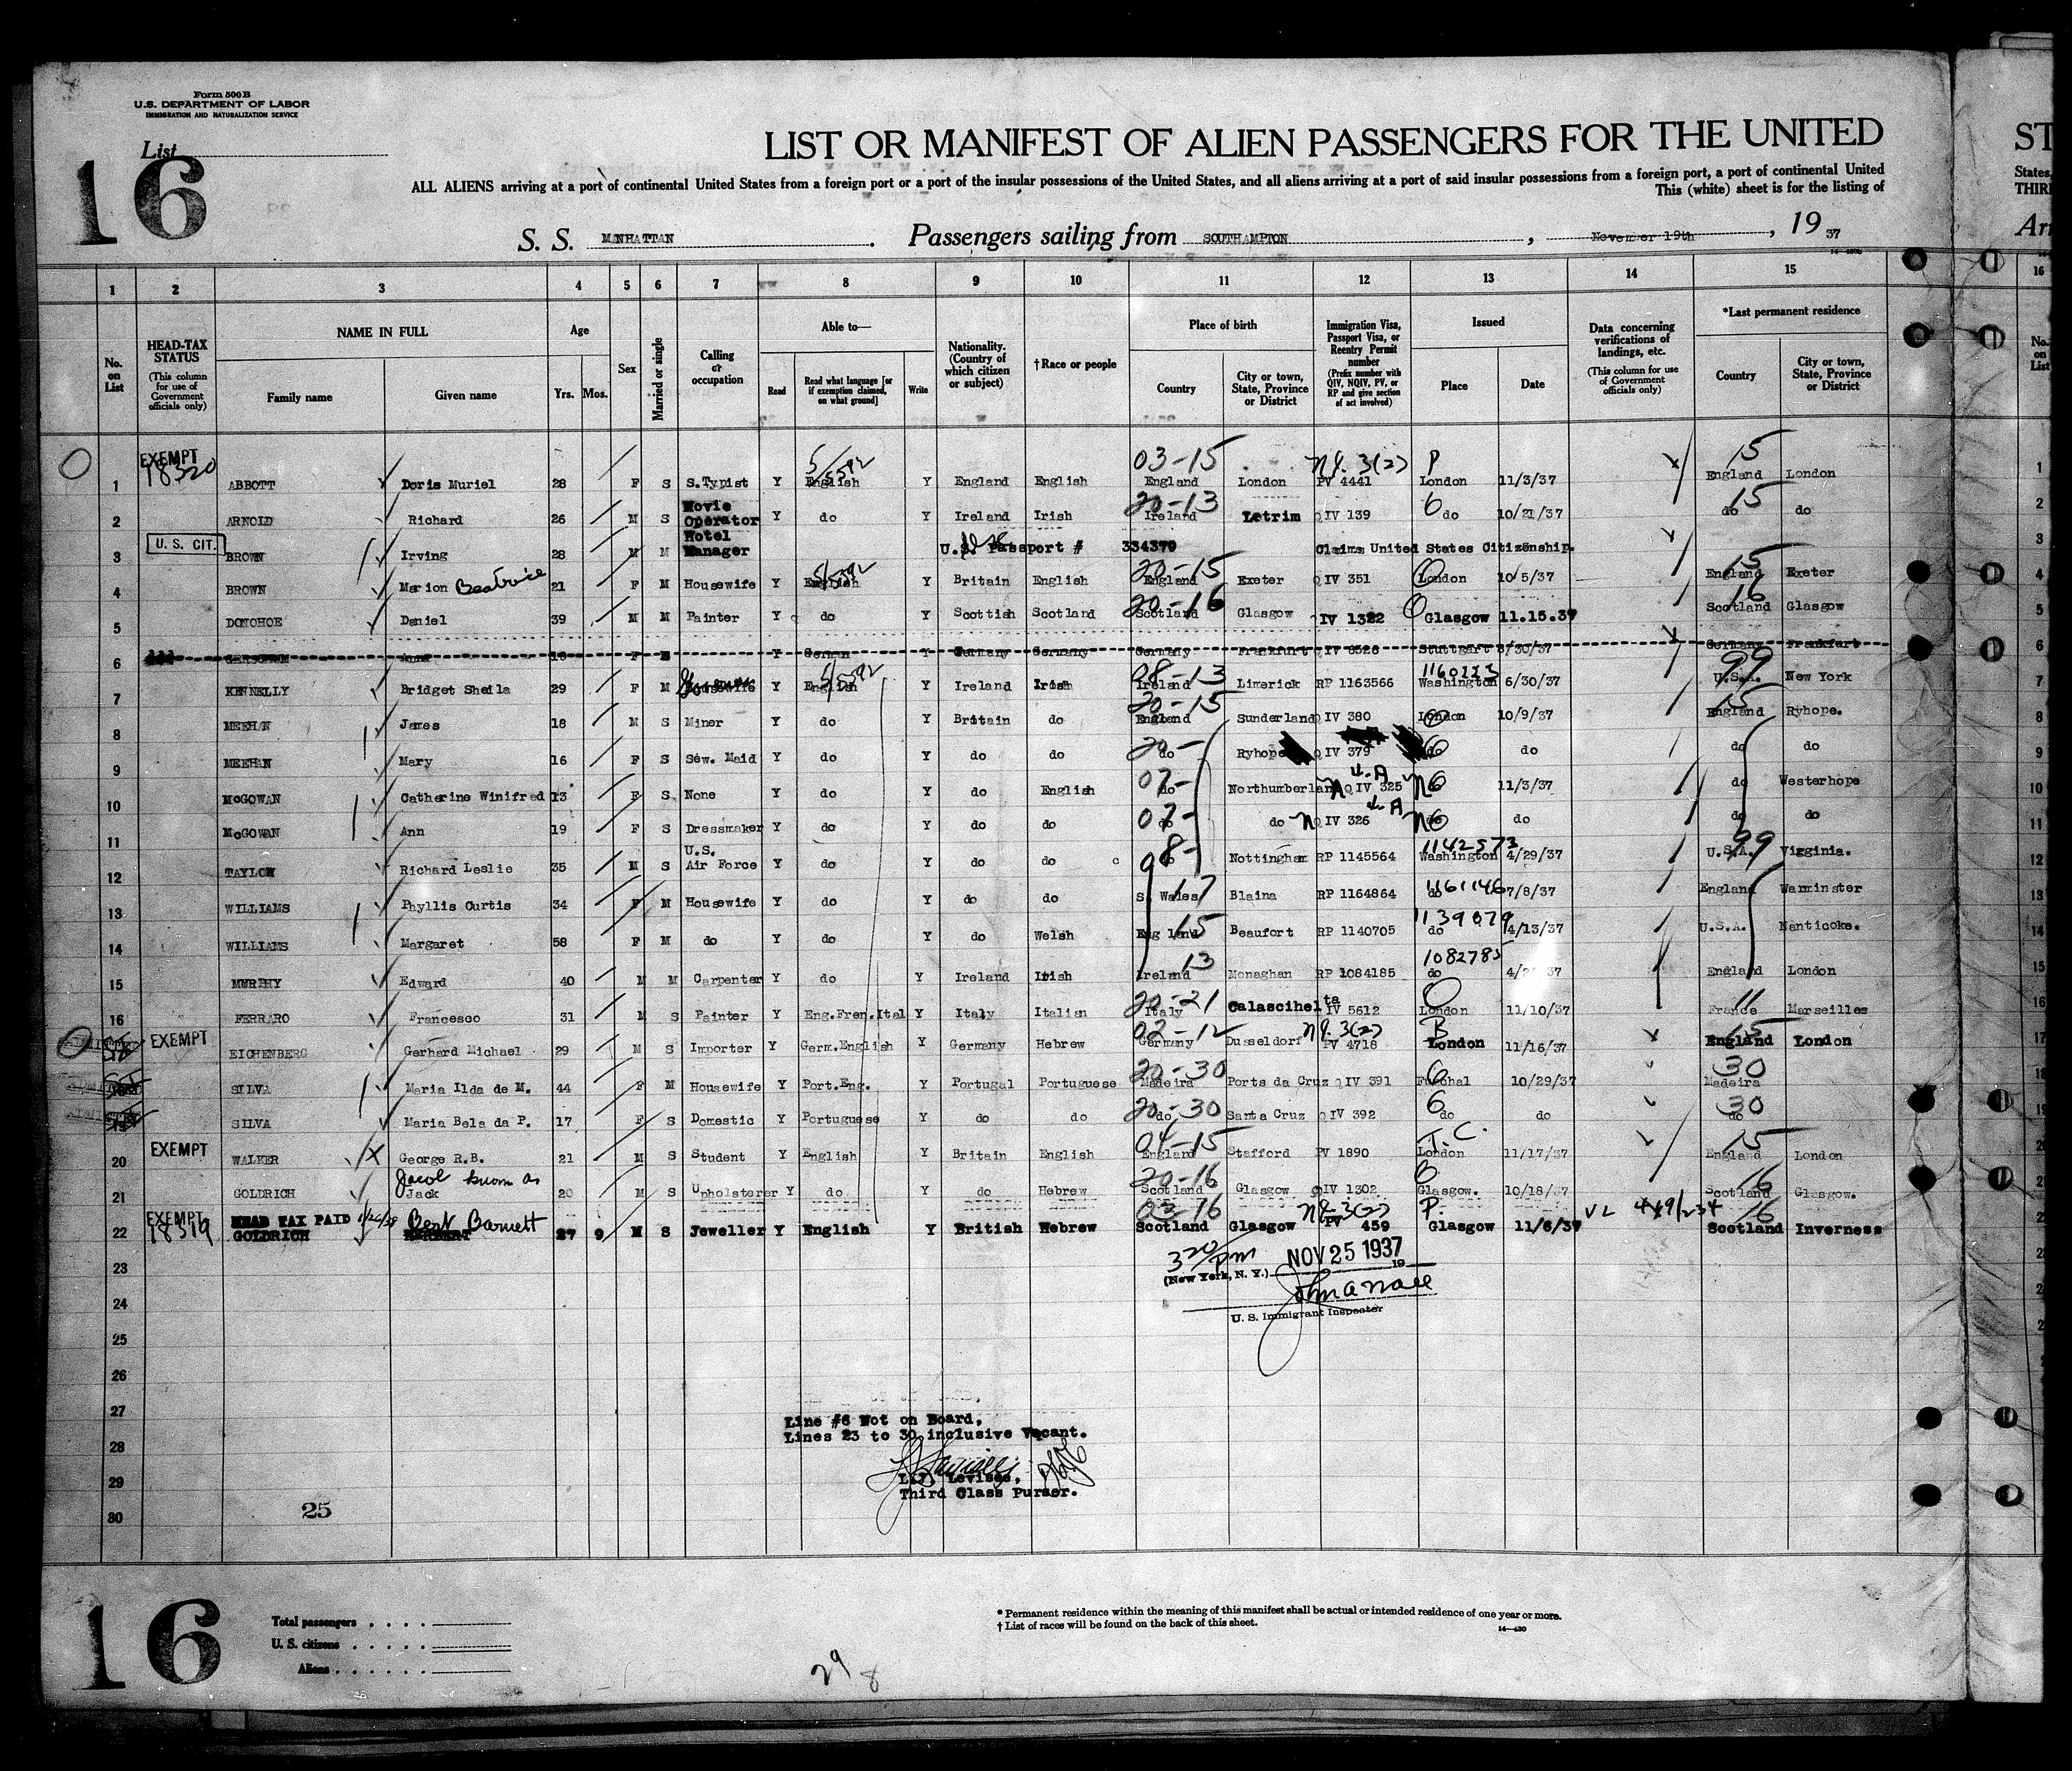 Form 500 B
U.S. DEPARTMENT OF LABOR
IMMIGRATION AND NATURALIZATION SERVICE
List
16
LIST OR MANIFEST OF ALIEN PASSENGERS FOR THE UNITED
ST
ALL ALIENS arriving at a port of continental United States from a foreign port or a port of the insular possessions of the United States, and all aliens arriving at a port of said insular possessions from a foreign port, a port of continental United
States,
This (white) sheet is for the listing of
THIRD
S. S. MANHATTAN. Passengers sailing from SOUTHAMPTON, November 19th, 19 37
1 2 3 4 5 6 7 8 9 10 11 12 13 14 15 16
No. on List
HEAD-TAX STATUS (This column for use of Government officials only)
NAME IN FULL
Family name Given name
Age
Yrs. Mos.
Sex
Married or single
Calling or occupation
Able to—
Read Read what language [or if exemption claimed, on what ground] Write
Nationality. (Country of which citizen or subject)
†Race or people
Place of birth
Country City or town, State, Province or District
Immigration Visa, Passport Visa, or Reentry Permit number (Prefix number with QIV, NQIV, PV, or RP and give section of act involved)
Issued
Place Date
Data concerning verifications of landings, etc. (This column for use of Government officials only)
*Last permanent residence
Country City or town, State, Province or District
EXEMPT 18320 5/5392 03-15 3(2) P 15
1 ABBOTT Doris Muriel 28 F S S.Typist Y English Y England English England London PV 4441 London 11/3/37 England London
20-13 6 15
2 ARNOLD Richard 26 M S Movie Operator Y do Y Ireland Irish Ireland Letrim QIV 139 do 10/21/37 do do
3 U. S. CIT. BROWN Irving 28 M M Hotel Manager U.S. Passport # 334379 Claims United States Citizenship.
5/5392 20-15 15
4 BROWN Marion Beatrice 21 F M Housewife Y English Y Britain English England Exeter QIV 351 London 10/5/37 England Exeter
20-16 16
5 DONOHOE Daniel 39 M M Painter Y do Y Scottish Scotland Scotland Glasgow QIV 1322 Glasgow 11.15.37 Scotland Glasgow
6 Anna F S Y German Y Germany Germany Germany Frankfurt QIV 6526 Stuttgart 8/30/37 Germany Frankfurt
5/5392 08-13 1160223 99
7 KENNELLY Bridget Sheila 29 F M Housewife Y English Y Ireland Irish Ireland Limerick RP 1163566 Washington 6/30/37 U.S.A. New York
20-15 15
8 MEEHAN James 18 M S Miner Y do Y Britain do England Sunderland QIV 380 London 10/9/37 England Ryhope.
20- 6
9 MEEHAN Mary 16 F S Sew. Maid Y do Y do do do Ryhope QIV 379 do do do do
07- 4-A n6
10 McGOWAN Catherine Winifred 13 F S None Y do Y do English do Northumberland NQIV 325 do 11/3/37 do Westerhope
07- 4-A n6
11 McGOWAN Ann 19 F S Dressmaker Y do Y do do do do NQIV 326 do do do do
98- 1142573 99
12 TAYLOR Richard Leslie 35 M S U.S. Air Force Y do Y do do do Nottingham RP 1145564 Washington 4/29/37 U.S.A. Virginia.
17 1161146
13 WILLIAMS Phyllis Curtis 34 F M Housewife Y do Y do do S. Wales Blaina RP 1164864 do 7/8/37 England Warminster
15 1139079
14 WILLIAMS Margaret 58 F M do Y do Y do Welsh England Beaufort RP 1140705 do 4/13/37 U.S.A. Nanticoke.
13 1082785
15 MURPHY Edward 40 M M Carpenter Y do Y Ireland Irish Ireland Monaghan RP 1084185 do England London
20-21 11
16 FERRARO Francesco 31 M S Painter Y Eng.Fren.Ital Y Italy Italian Italy Calascibetta QIV 5612 London 11/10/37 France Marseilles
EXEMPT 02-12 3(2) B 15
17 EICHENBERG Gerhard Michael 29 M S Importer Y Germ.English Y Germany Hebrew Germany Dusseldorf PV 4718 London 11/16/37 England London
20-30 6 30
18 SILVA Maria Ilda de M. 44 F M Housewife Y Port.Eng. Y Portugal Portuguese Madeira Ports da Cruz QIV 391 Funchal 10/29/37 Madeira
20-30 6 30
19 SILVA Maria Bela da P. 17 F S Domestic Y Portuguese Y do do do Santa Cruz QIV 392 do do do
EXEMPT 04-15 T.C. 15
20 WALKER George R.B. 21 M S Student Y English Y Britain English England Stafford PV 1890 London 11/17/37 England London
Jacob known as 20-16 6 16
21 GOLDRICH Jack 20 M S Upholsterer Y do Y do Hebrew Scotland Glasgow QIV 1302 Glasgow. 10/18/37 Scotland Glasgow.
EXEMPT 18319 HEAD TAX PAID 1/26/38 Bert Barnett 03-16 3(2) P. 16
22 GOLDRICH 27 9 M S Jeweller Y English Y British Hebrew Scotland Glasgow PV 459 Glasgow 11/6/37 Scotland Inverness
23 320/pm (New York, N. Y.) NOV 25 1937 19
24
U. S. Immigrant Inspector
25
26
27
Line #6 Not on Board,
28 Lines 23 to 30 inclusive Vacant.
29 L.J. Levises,
Third Class Purser.
30 25
16
Total passengers
U. S. citizens
Aliens
* Permanent residence within the meaning of this manifest shall be actual or intended residence of one year or more.
† List of races will be found on the back of this sheet.
14—430
29 8